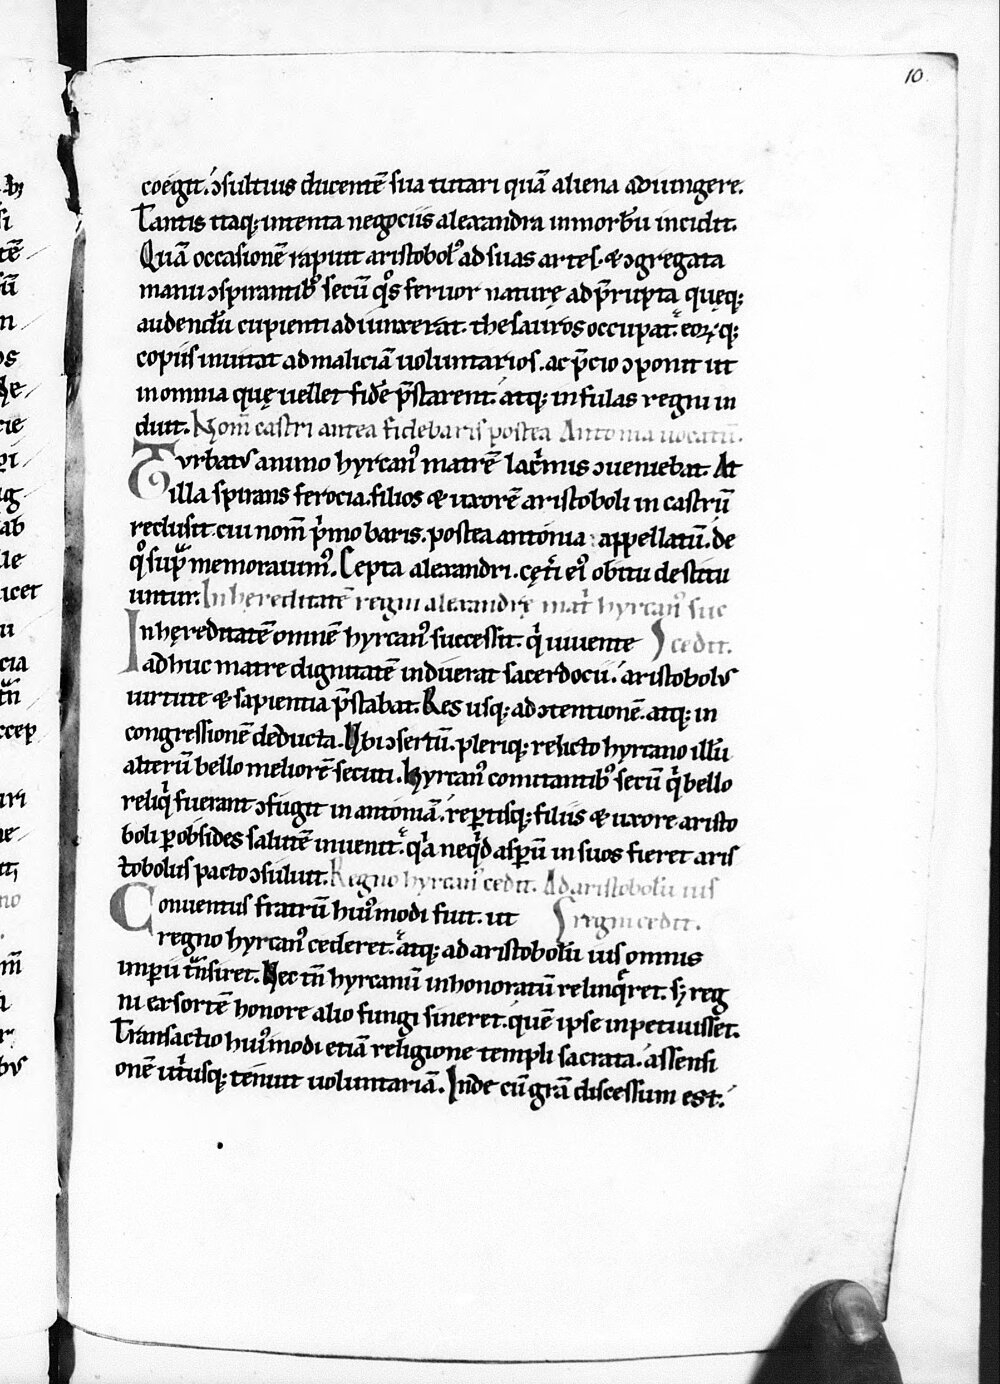 10
coegit. ɔsultius ducentē sua tutari quā aliena adiungere.
Tantis itaq; intenta negociis alexandra in morbū incidit.
Quā occasionē rapuit aristobolꝰ ad suas artes. & ɔgregata
manu ɔspirantibꝰ secū qͦs feruor naturę ad p̄rupta quęq;
audendū cupienti adiunxerat. thesauros occupat. eoꝝq;
copiis inuitat ad maliciā uoluntarios. ac p̄cio ɔponit ut
in omnia quę uellet fidē p̄starent. atq; infulas regni in
duit. Nom̄ castri antea fide baris postea Antonia uocatū.
Turbatus animo hyrcanꝰ matrē lac̍mis ɔueniebat. At
illa spirans ferocia. filios & uxorē aristoboli in castrū
reclusit. cui nom̄ p̍mo baris. postea antonia appellatū. de
qͦ sup̄ memorauimꝰ. Cepta alexandri. cęt̍i eiꝰ obitu destitu
untur. In hereditatē regni alexandrę mat̍ hyrcanꝰ suc
Inhęreditatē omnē hyrcanꝰ successit. q̍ uiuente cedit.
adhuc matre dignitatē induerat sacerdocii. aristobolus
uirtute & sapientia p̄stabat. Res usq; ad ɔtentionē. atq; in
congressionē deducta. Vbi ɔsertū. pleriq; relicto hyrcano illū
alterū bello meliorē secuti. hyrcanꝰ comitantibꝰ secū q̍ bello
reliq̍ fuerant ɔfugit in antoniā. repertisq; filiis & uxore aristo
boli ꝑ obsides salutē inuenit. qᷓa neq̍d asꝑū in suos fieret aris
tobolus pacto ɔsuluit. Regno hyrcanꝰ cedit. Ad aristobolū ius
Conuentus fratrū huiꝰmodi fuit. ut regni cedit.
regno hyrcanꝰ cederet. atq; ad aristobolū ius omnis
imperii tᷓnsiret. Nec tn̄ hyrcanū inhonoratū relinq̍ret. sꝫ reg
ni exsortē honore alio fungi sineret. quē ipse inpetiuisset.
Transactio huiꝰmodi etiā religione templi sacrata. assensi
onē ut̍usq; tenuit uoluntariā. Inde cū grā discessum est.